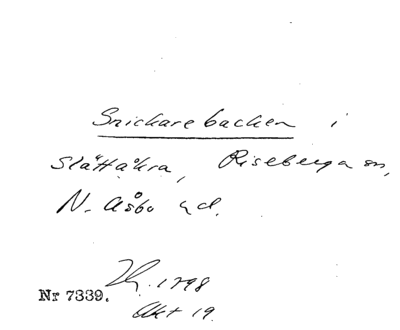 Snickarebacken i
Slättåkra, Riseberga sn,
N. Åsbo hd.
Nr 7339.
1798
Akt 19